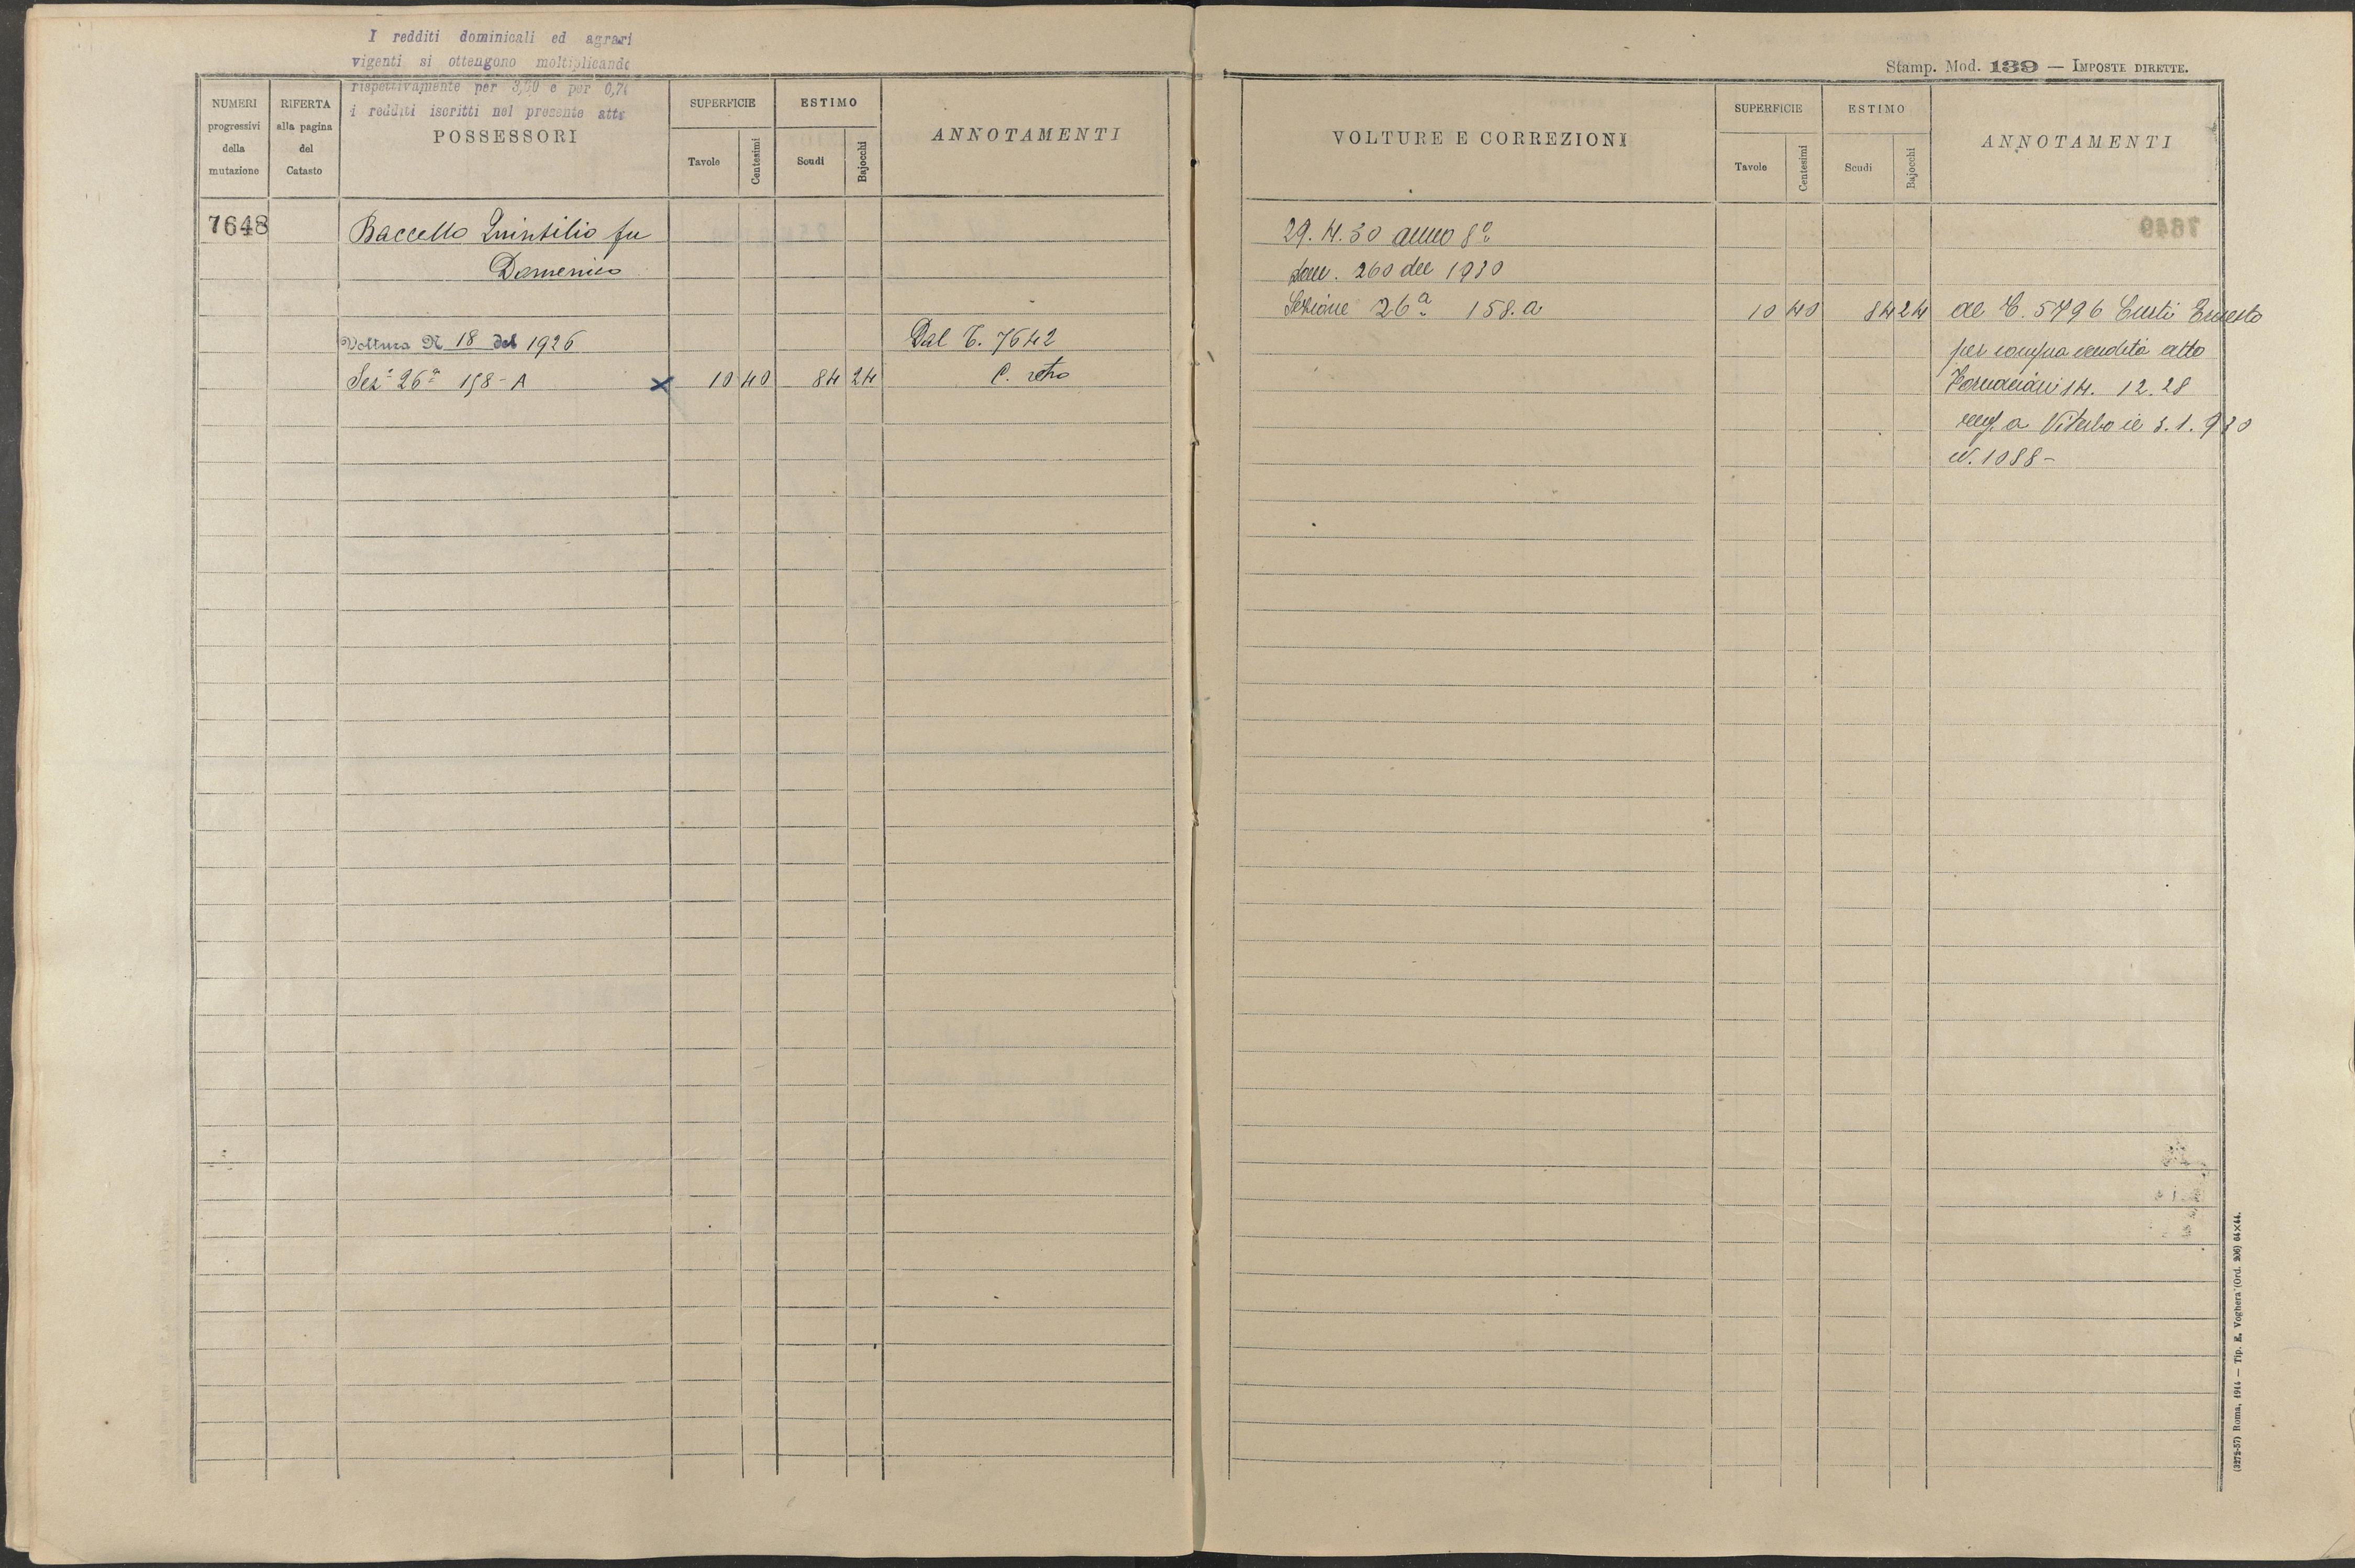 I redditi dominicali ed agrari
vigenti si ottengono moltiplicando
rispettivamente per 3,50 e per 0,70
i redditi iscritti nel presente atto
NUMERI progressivi della mutazione
RIFERTA alla pagina del Catasto
POSSESSORI
SUPERFICIE
Tavole
Centesimi
ESTIMO
Scudi
Bajocchi
ANNOTAMENTI
7648
Baccello Quintilio fu
Domenico
Voltura N 18 del 1926
Dal C. 7642
Sez.e 26a 158-A x 10 40 84 24 C. retro
Stamp. Mod. 139 — IMPOSTE DIRETTE.
VOLTURE E CORREZIONI
SUPERFICIE
Tavole
Centesimi
ESTIMO
Scudi
Bajocchi
ANNOTAMENTI
29.4.30 anno 8o
260 del 1930
Sezione 26a 158.a 10 40 84 24 al C. 5796 Ernesto
per compra vendita atto
14. 12. 28
reg. a Viterbo il 3.1.930
N. 1088-
(3275-57) Roma, 1914 — Tip. E. Voghera (Ord. 206) 64×44.